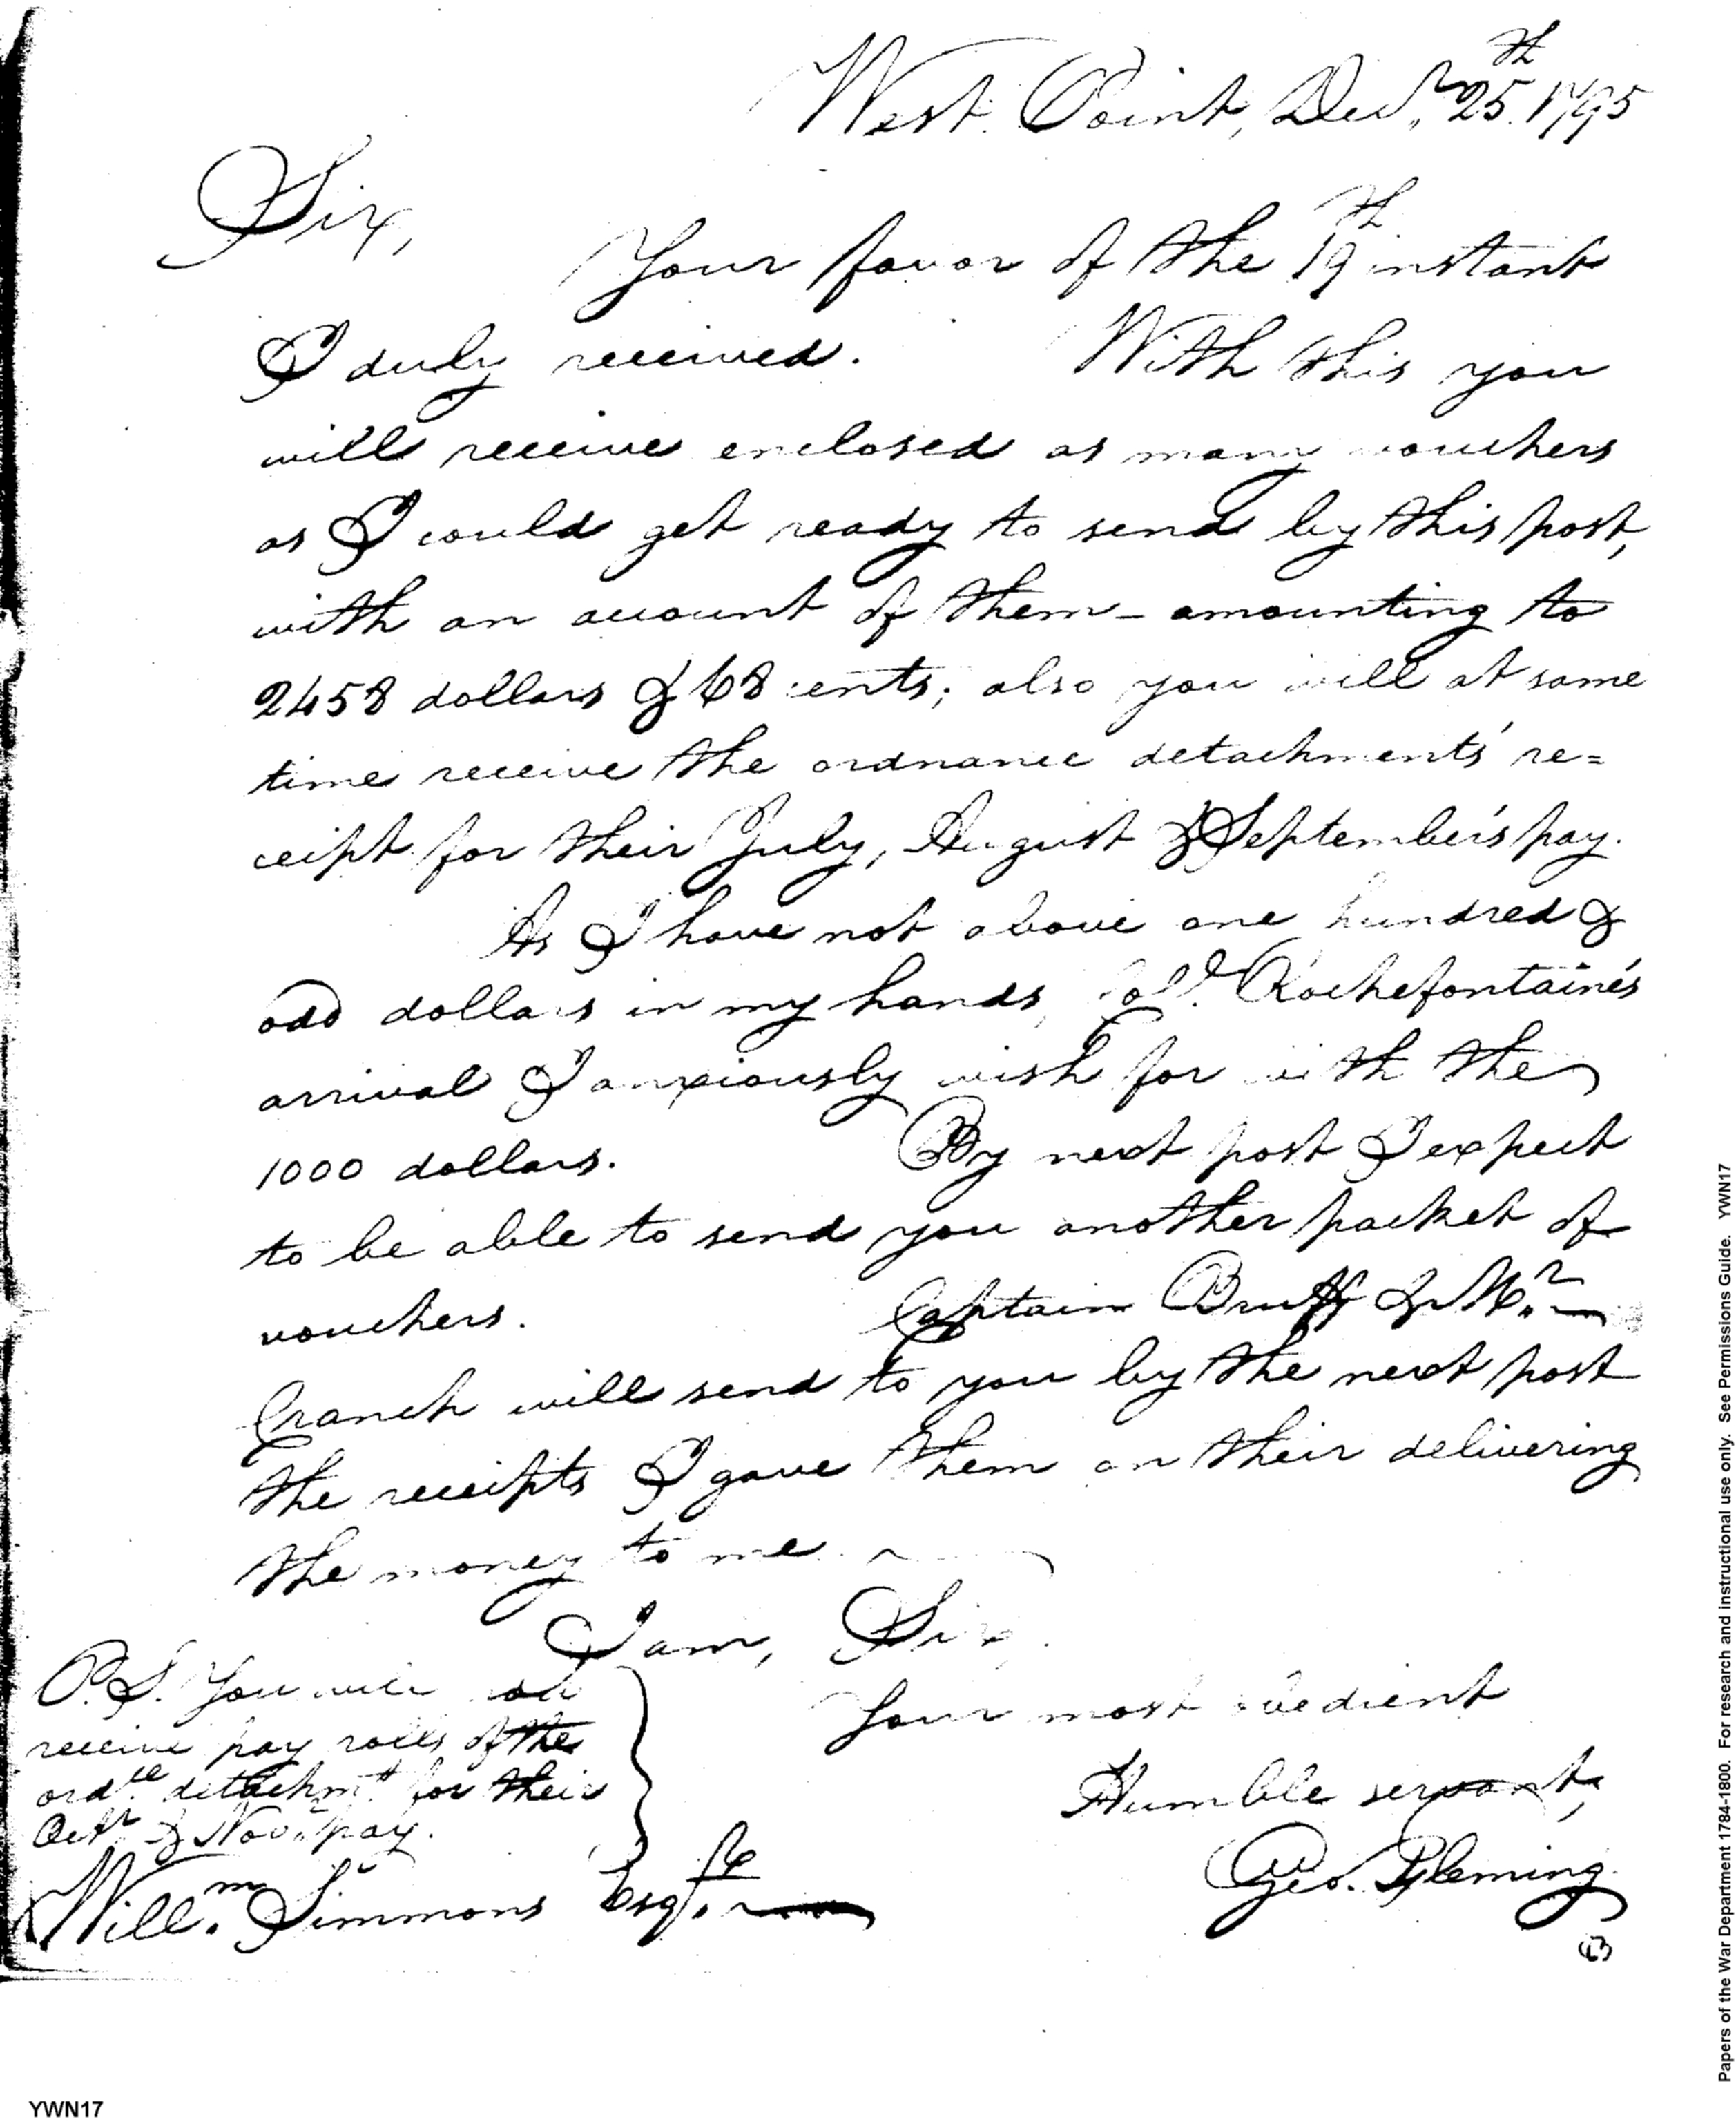 West Point, Decr. 25th. 1795
Sir,
Your favor of the 19th instant
I duly received. With this you
will receive enclosed as many vouchers
as I could get ready to send by this post,
with an account of them - amounting to
2458 dollars & 68 cents; also you will at same
time receive the ordnance detachments' re=
ceipt for their July, August & September's pay.
As I have not above one hundred &
odd dollars in my hands, Coll. Rochefontaine's
arrival I anxiously wish for with the
1000 dollars. By next post I expect
to be able to send you another packet of
vouchers. Captain Bruff & Mr.
Cranch will send to you by the next post
the receipts I gave them on their delivering
the money to me.
I am, Sir,
Your most obedient
Humble servant,
Geo. Fleming
P.S. You will
receive pay rolls of the
ordce. detachmt. for their
Octr. & Novr. pay.
Willm. Simmons Esqr.
Papers of the War Department 1784-1800. For research and instructional use only. See Permissions Guide. YWN17
YWN17